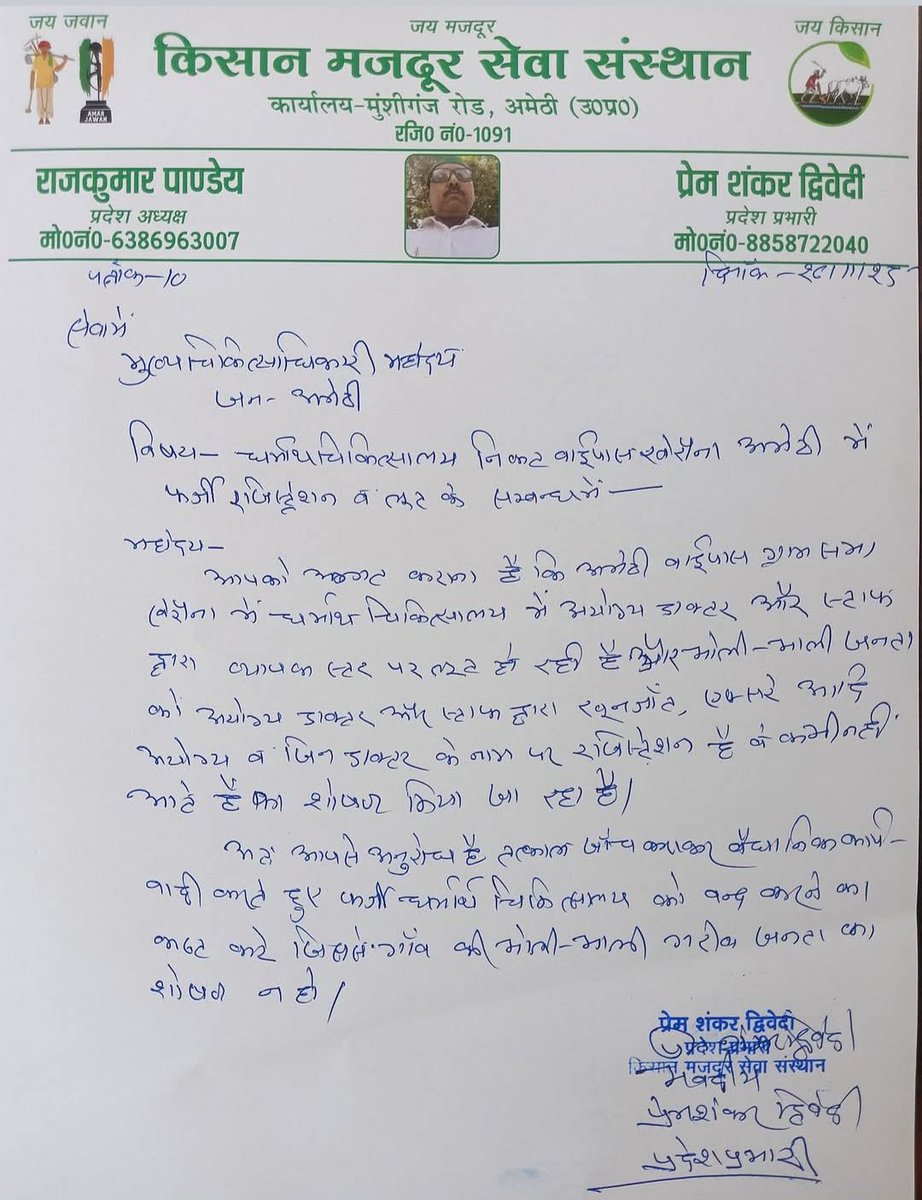 जय जवान
जय मजदूर
जय किसान
किसान मजदूर सेवा संस्थान
कार्यालय-मुंशीगंज रोड, अमेठी (उ0प्र0)
रजि0 नं0-1091
AMAR JAWAN
राजकुमार पाण्डेय
प्रदेश अध्यक्ष
मो0नं0-6386963007
प्रेम शंकर द्विवेदी
प्रदेश प्रभारी
मो0नं0-8858722040
पत्रांक-10
दिनाँक-
सेवामें
मुख्यचिकित्साधिकारी महोदय
जन- अमेठी
विषय- धर्मार्थ चिकित्सालय निकट वाईपास खेरौना अमेठी में
फर्जी रजिस्ट्रेशन व लूट के सम्बन्ध में—
महोदय-
आपको अवगत कराना है कि अमेठी वाईपास ग्राम सभा
खेरौना में धर्मार्थ चिकित्सालय में अयोग्य डाक्टर और स्टाफ
द्वारा व्यापक स्तर पर लूट हो रही है और भोली-भाली जनता
को अयोग्य डाक्टर और स्टाफ द्वारा खूनजाँच, एक्सरे आदि
अयोग्य व जिन डाक्टर के नाम पर रजिस्ट्रेशन है वे कभी नहीं
आते हैं का शोषण किया जा रहा है।
अतः आपसे अनुरोध है तत्काल जाँच कराकर वैधानिक कार्य-
वाही करते हुए फर्जी धर्मार्थ चिकित्सालय को बन्द करने का
कष्ट करे जिससे गाँव की भोली-भाली गरीब जनता का
शोषण न हो।
प्रेम शंकर द्विवेदी
प्रदेश प्रभारी
किसान मजदूर सेवा संस्थान
भवदीय
प्रेमशंकर द्विवेदी
प्रदेश प्रभारी